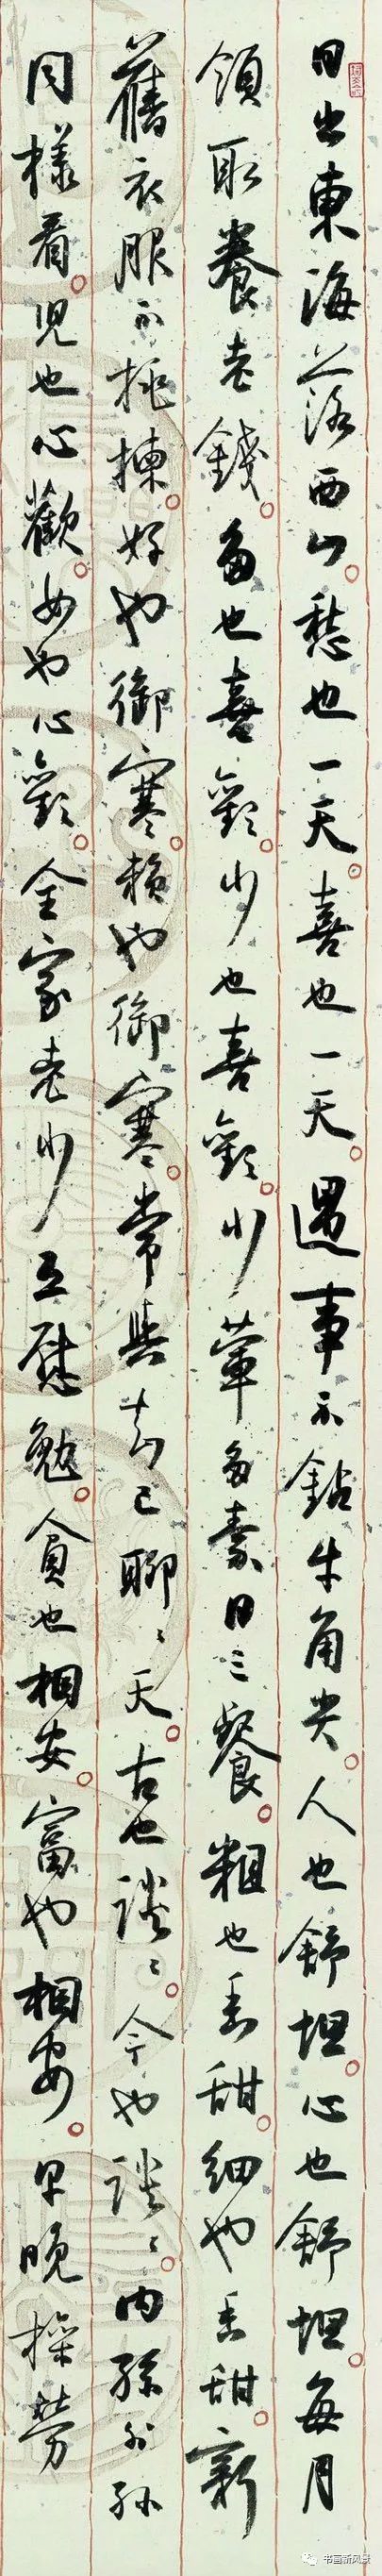 日出東海落西山。愁也一天。喜也一天。遇事不鉆牛角尖。人也舒坦。心也舒坦。每月
領取養老錢。多也喜歡。少也喜歡。少葷多素日三餐。粗也香甜。細也香甜。新
舊衣服不挑揀。好也御寒。賴也御寒。常與知己聊〻天。古也談〻。今也談〻。内孫外孙
同樣看。兒也心歡。女也心歡。全家老少互慰勉。貧也相安。富也相安。早晚操勞
书画新风景